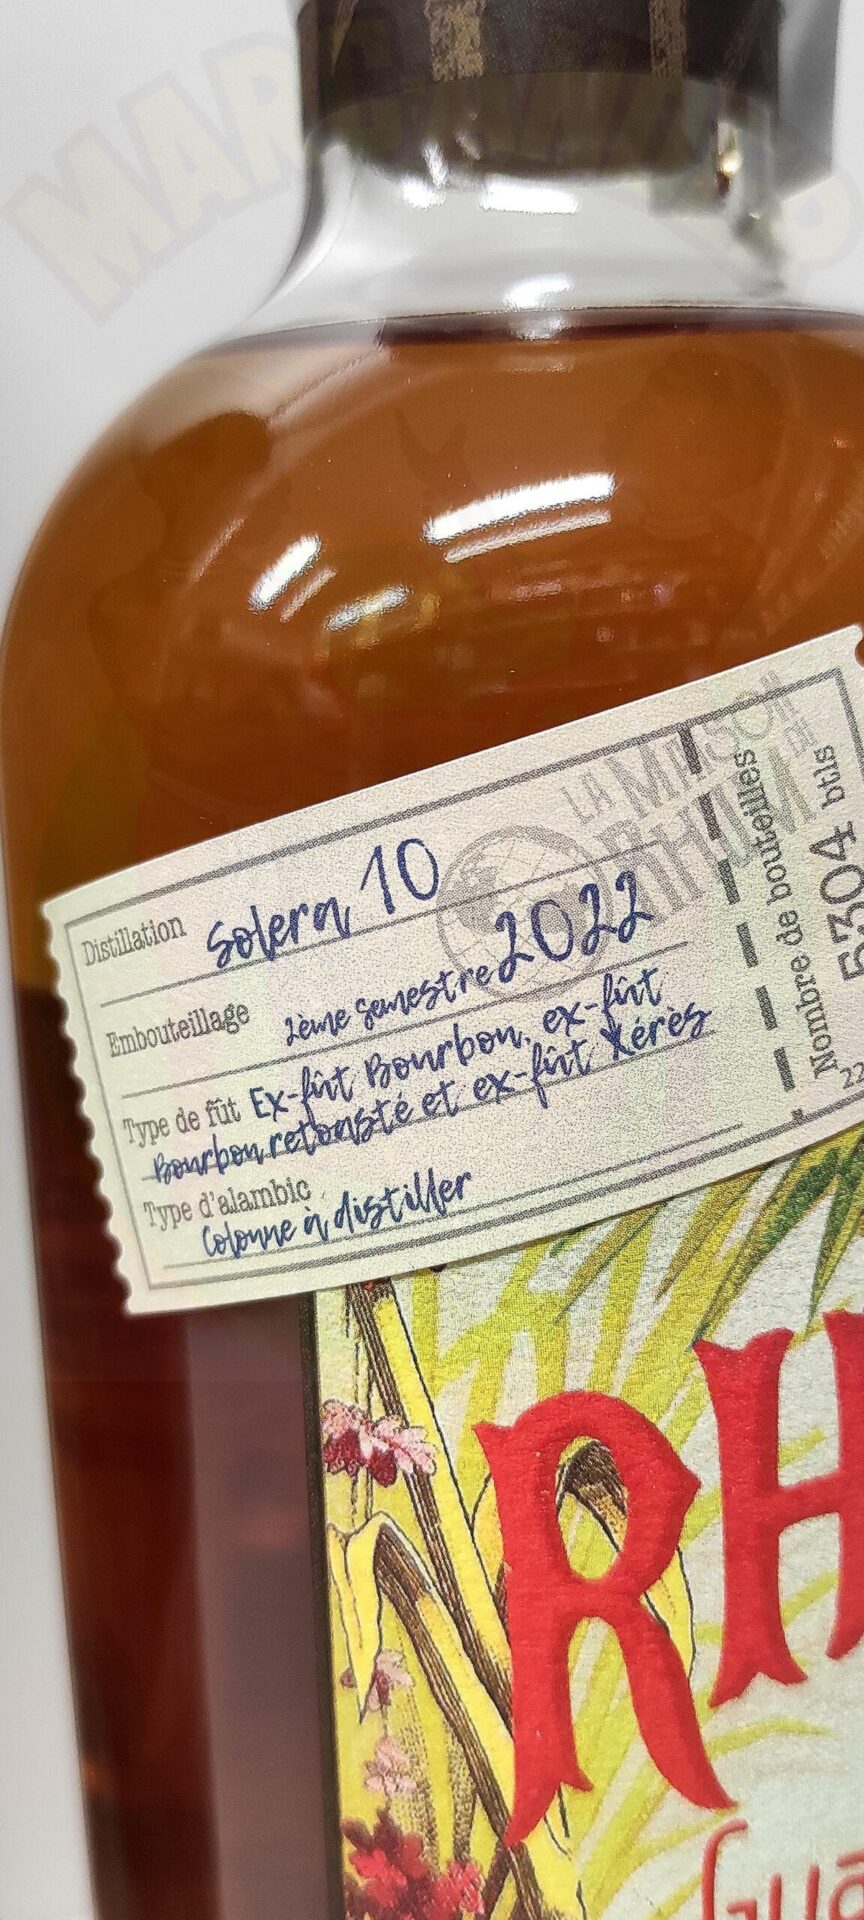 LA MAISON
DU
RHUM
Distillation Solera 10
Embouteillage 2ème semestre 2022
Type de fût Ex-fût Bourbon, ex-fût
Bourbon retoasté et ex-fût Xérès
Type d'alambic
Colonne à distiller
Nombre de bouteilles
5304 btls
RH
Gua